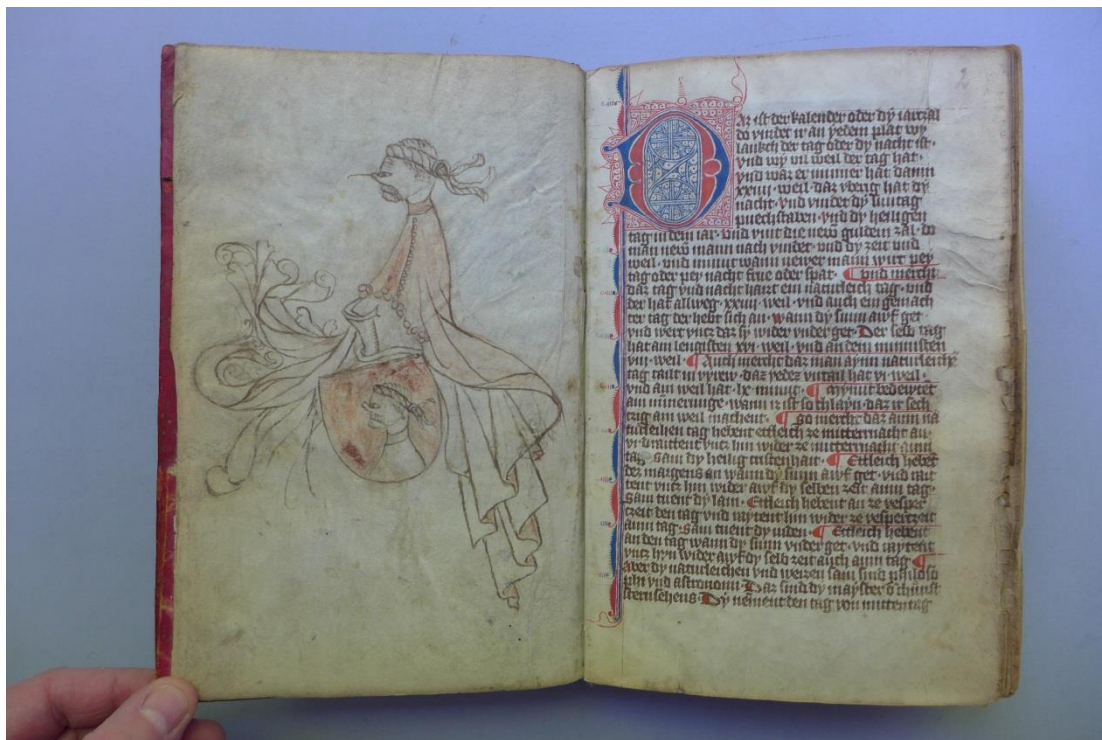 2
Daz ist der kalender oder dÿ iarczal
do vindet ir an yedem plat wy
lankch der tag oder dÿ nacht ist ·
vnd wÿ vil weil der tag hat ·
vnd waz er minner hat dann
xxiiij · weil · daz vbrig hat dÿ
nacht · vnd vindet dÿ suntag
puechstaben · vnd dÿ heiligen
tag in dem iar · vnd vint die new guldein zal · do
man new mann nach vindet · vnd dÿ zeit vnd
weil · vnd minut wann newer mann wirt pey
tag oder pey nacht frue oder spat · ¶ vnd merkcht
daz tag vnd nacht haizt ein naturleich tag · vnd
der hat allweg · xxiiij · weil · vnd auch ein gemach
ter tag der hebt sich an · wann dÿ sunn awf get
vnd wert vncz daz sÿ wider vnder get · Der selb tag
hat am lengisten xvj · weil · vnd an dem minnisten
viij · weil · ¶ Auch merkcht daz man aynn naturleichen
tag tailt in vyrew · daz yedez virtail hat vj · weil ·
vnd ain weil hat · lx · minut · ¶ Mynut bedewtet
ain minnerunge · wann ir ist so chlayn · daz ir sech
czig ain weil machent · ¶ So merkcht daz ainn na
turleihen tag hebent ettleich ze mitternacht an ·
vnd raittent vncz hin wider ze mitternacht ainn
tag · sam dy heilig cristenhait · ¶ Ettleich hebent
des margens an wann dÿ sunn awf get · vnd rait
tent vncz hin wider awf dÿ selben zeit ainn tag ·
sam tuent dÿ lain · Ettleich hebent an ze vesper
czeit den tag vnd raytent hin wider ze vesperczeit
ainn tag · sam tuent dÿ iuden · ¶ Ettleich hebent
an den tag wann dÿ sunn vnder get · vnd raytent
vncz hyn wider awf dÿ selb zeit auch ainn tag · ¶
aber dÿ naturleichen vnd weizen sam sind philoso
phi vnd astronomi · Daz sind dy mayster d' chunst
sternsehens · Dÿ nement den tag von mittentag